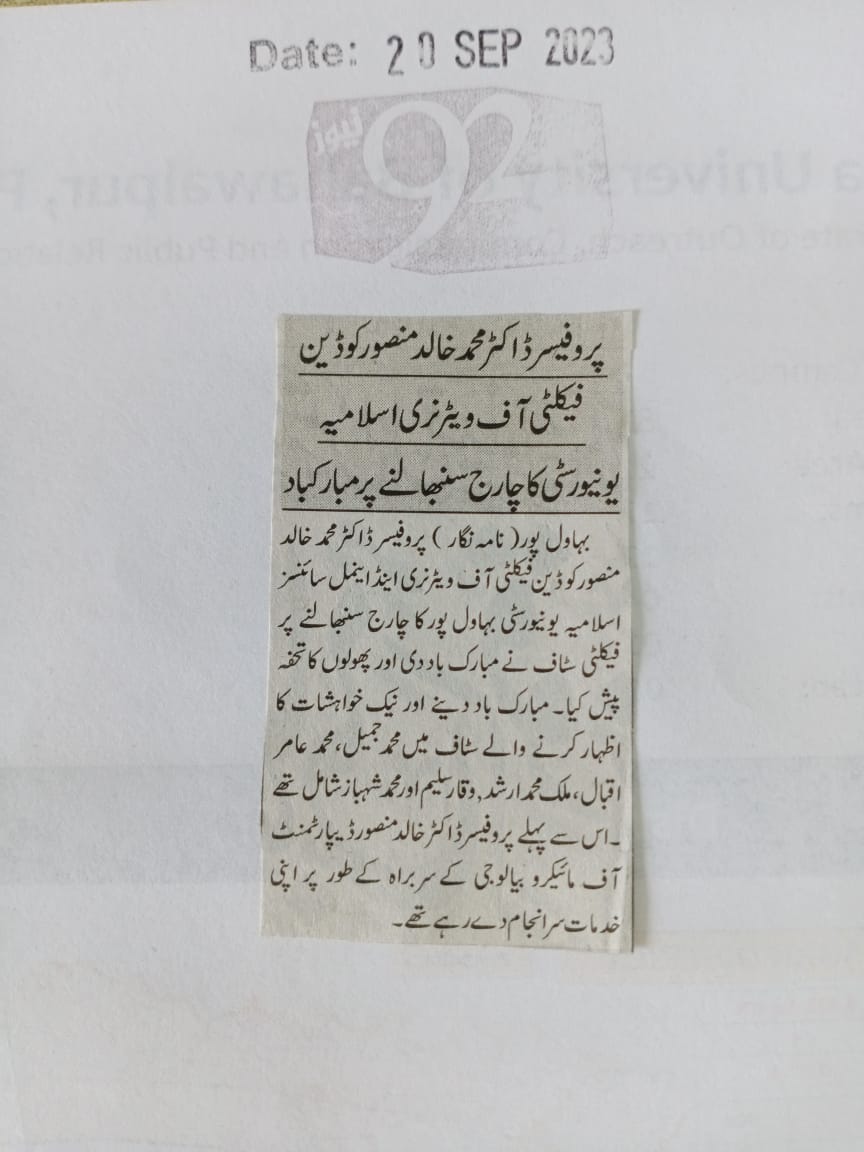 Date: 20 SEP 2023
92 نیوز
پروفیسر ڈاکٹر محمد خالد منصور کو ڈین
فیکلٹی آف ویٹرنری اسلامیہ
یونیورسٹی کا چارج سنبھالنے پر مبارکباد
بہاول پور( نامہ نگار ) پروفیسر ڈاکٹر محمد خالد
منصور کو ڈین فیکلٹی آف ویٹرنری اینڈ اینمل سائنسز
اسلامیہ یونیورسٹی بہاول پور کا چارج سنبھالنے پر
فیکلٹی سٹاف نے مبارک باد دی اور پھولوں کا تحفہ
پیش کیا۔ مبارک باد دینے اور نیک خواہشات کا
اظہار کرنے والے سٹاف میں محمد جمیل، محمد عامر
اقبال، ملک محمد ارشد, وقار سلیم اور محمد شہباز شامل تھے
۔اس سے پہلے پروفیسر ڈاکٹر خالد منصور ڈیپارٹمنٹ
آف مائیکرو بیالوجی کے سربراہ کے طور پر اپنی
خدمات سرانجام دے رہے تھے۔